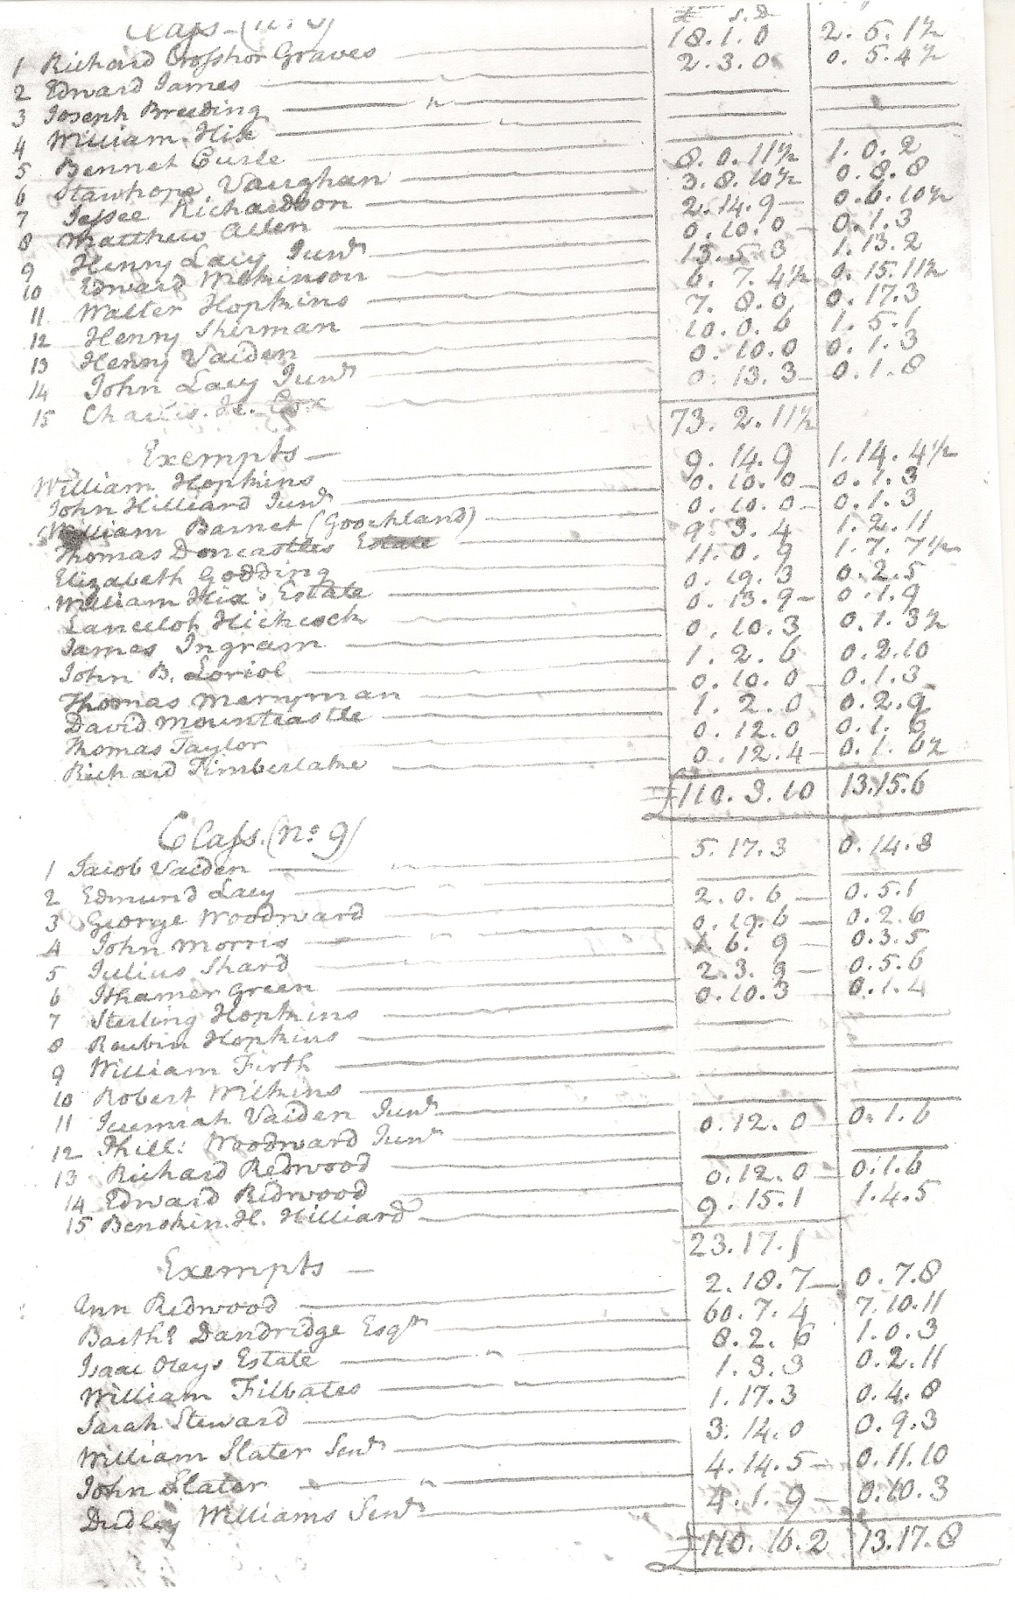 Class. (No. 8)
£ S. D
1 Richard Crosshor Graves 18. 1. 0 2. 5. 1½
2 Edward James 2. 3. 0 0. 5. 4½
3 Joseph Breeding
4 William Hix
5 Bennet Curle
6 Stanhope Vaughan 8. 0. 11½ 1. 0. 2
7 Jessee Richardson 3. 8. 10½ 0. 8. 8
8 Matthew Allen 2. 14. 9 0. 6. 10½
9 Henry Lacy Junr 0. 10. 0 0. 1. 3
10 Edward Wilkinson 13. 5. 3 1. 13. 2
11 Walter Hopkins 6. 7. 4½ 0. 15. 11½
12 Henry Sherman 7. 8. 0 0. 17. 3
13 Henry Vaiden 10. 0. 6 1. 5. 1
14 John Lacy Junr 0. 10. 0 0. 1. 3
15 Cox 0. 13. 3 0. 1. 8
73. 2. 11½
Exempts
William Hopkins 9. 14. 9 1. 14. 4½
John Hilliard Junr 0. 10. 0 0. 1. 3
William Barnet (Goochland) 0. 10. 0 0. 1. 3
Thomas Doncastles Estate 9. 3. 4 1. 2. 11
Elizabeth Godding 11. 0. 9 1. 7. 7½
William Hix's Estate 0. 19. 3 0. 2. 5
Lancelot Hichcock 0. 13. 9 0. 1. 9
James Ingram 0. 10. 3 0. 1. 3½
John B. Loriol 1. 2. 6 0. 2. 10
Thomas Merryman 0. 10. 0 0. 1. 3
David Mountcastle 1. 2. 0 0. 2. 9
Thomas Taylor 0. 12. 0 0. 1. 6
Richard Timberlake 0. 12. 4 0. 1. 6½
£110. 9. 10 13. 15. 6
Class. (No. 9)
1 Jacob Vaiden 5. 17. 3 0. 14. 8
2 Edmund Lacy
3 George Woodward 2. 0. 6 0. 5. 1
4 John Morris 0. 19. 6 0. 2. 6
5 Julius Shard 1. 6. 9 0. 3. 5
6 Ithamer Green 2. 3. 9 0. 5. 6
7 Sterling Hopkins 0. 10. 3 0. 1. 4
8 Reubin Hopkins
9 William Firth
10 Robert Wilkins
11 Jeremiah Vaiden Junr
12 Phill: Woodward Junr 0. 12. 0 0. 1. 6
13 Richard Redwood
14 Edward Redwood 0. 12. 0 0. 1. 6
15 Benskin. H. Hilliard 9. 15. 1 1. 4. 5
23. 17. 1
Exempts
Ann Redwood 2. 18. 7 0. 7. 8
Barthw Dandridge Esqr 60. 7. 4 7. 10. 11
Isaac Oleys Estate 8. 2. 6 1. 0. 3
William Filbates 1. 3. 3 0. 2. 11
Sarah Steward 1. 17. 3 0. 4. 8
William Slater Senr 3. 14. 0 0. 9. 3
John Slater 4. 14. 5 0. 11. 10
Dudley Williams Senr 4. 1. 9 0. 10. 3
£110. 16. 2 13. 17. 8